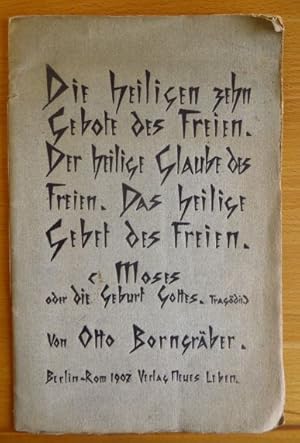 Die heiligen zehn
Gebote des Freien.
Der heilige Glaube des
Freien. Das heilige
Gebet des Freien.
Moses
oder die Geburt Gottes. Tragödie
Von Otto Borngräber.
Berlin-Rom 1902 Verlag Neues Leben.